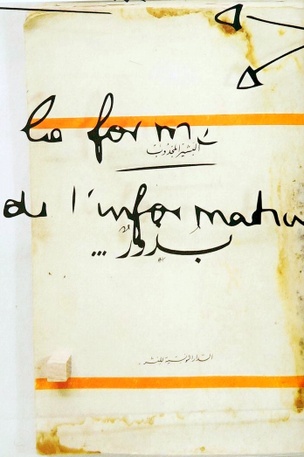 la forme
البشير المجذوب
de l'information
بذور...
الدار التونسية للنشر